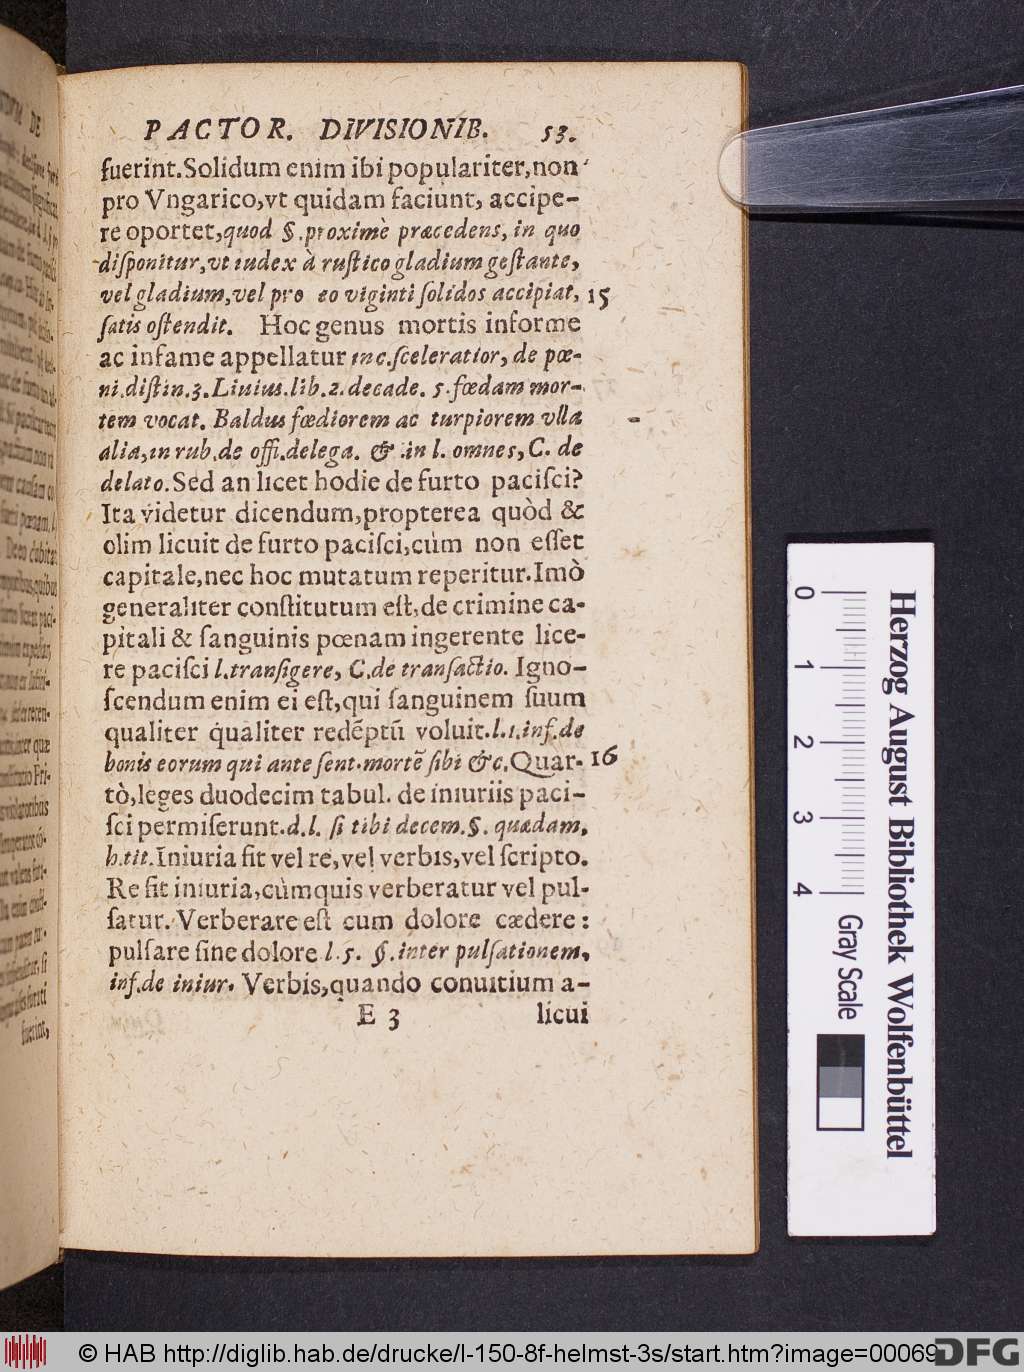 PACTOR. DIVISIONIB. 53.
fuerint.Solidum enim ibi populariter,non
pro Vngarico,vt quidam faciunt, accipe-
re oportet,quod §.proximè præcedens, in quo
diſponitur,vt iudex à ruſtico gladium geſtante,
vel gladium,vel pro eo viginti ſolidos accipiat, 15
ſatis oſtendit. Hoc genus mortis informe
ac infame appellatur inc.ſceleratior, de pœ-
ni.diſtin.3.Liuius.lib.2.decade. 5.fœdam mor-
tem vocat. Baldus fœdiorem ac turpiorem vlla
alia,in rub.de offi.delega. & .in l. omnes, C. de
delato.Sed an licet hodie de furto paciſci?
Ita videtur dicendum,propterea quòd &
olim licuit de furto paciſci,cùm non eſſet
capitale,nec hoc mutatum reperitur.Imò
generaliter conſtitutum eſt,de crimine ca-
pitali & ſanguinis pœnam ingerente lice-
re paciſci l.tranſigere, C.de tranſactio. Igno-
ſcendum enim ei eſt,qui ſanguinem ſuum
qualiter qualiter redēptū voluit.l.1.inf.de
bonis eorum qui ante ſent.mortē ſibi &c.Quar- 16
tò,leges duodecim tabul. de iniuriis paci-
ſci permiſerunt.d.l. ſi tibi decem.§. quædam,
h.tit.Iniuria fit vel re,vel verbis,vel ſcripto.
Re fit iniuria,cùm quis verberatur vel pul-
ſatur. Verberare eſt cum dolore cædere:
pulſare ſine dolore l.5. §.inter pulſationem,
inf.de iniur. Verbis,quando conuitium a-
E 3 licui
fuerint,
0 1 2 3 4
Gray Scale
Herzog August Bibliothek Wolfenbüttel
© HAB http://diglib.hab.de/drucke/l-150-8f-helmst-3s/start.htm?image=00069
DFG